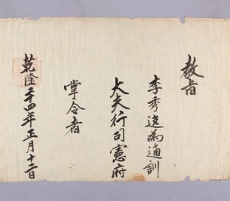 敎旨
李秀逸爲通訓
大夫行司憲府
掌令者
乾隆二十四年正月十二日